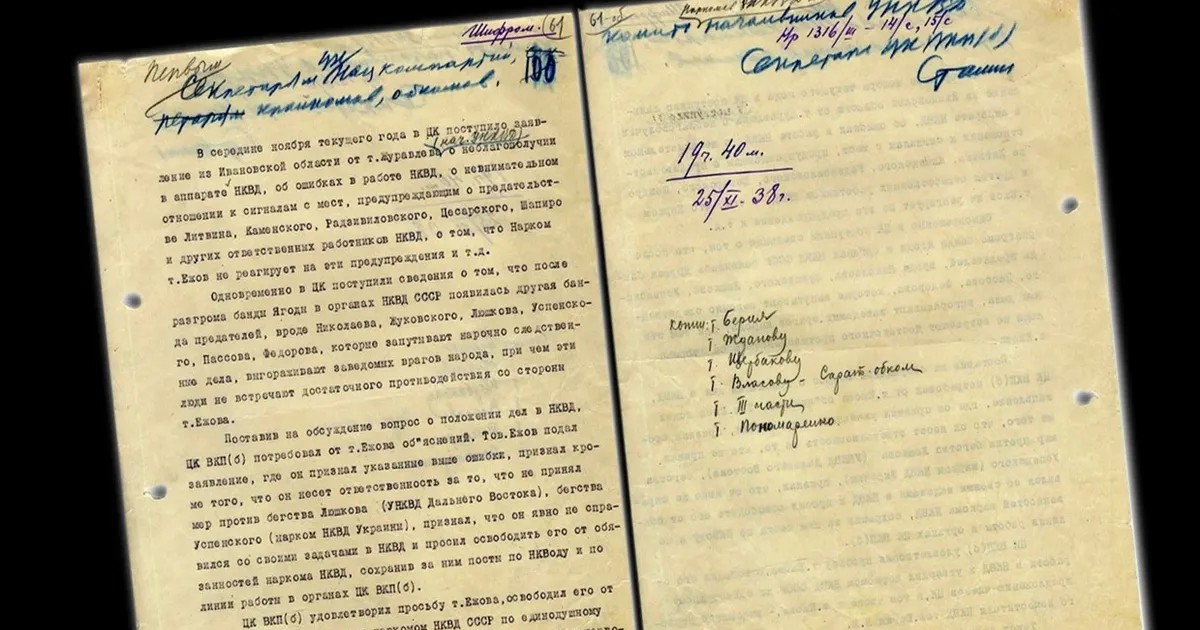 Шифром.
61
Первым
Секретарям ЦК Нацкомпартий,
крайкомов, обкомов.
В середине ноября текущего года в ЦК поступило заяв-
(нач. УНКВД)
ление из Ивановской области от т.Журавлева о неблагополучии
в аппарате НКВД, об ошибках в работе НКВД, о невнимательном
отношении к сигналам с мест, предупреждающим о предательст-
ве Литвина, Каменского, Радзивиловского, Цесарского, Шапиро
и других ответственных работников НКВД, о том, что Нарком
т.Ежов не реагирует на эти предупреждения и т.д.
Одновременно в ЦК поступили сведения о том, что после
разгрома банды Ягоды в органах НКВД СССР появилась другая бан-
да предателей, вроде Николаева, Жуковского, Люшкова, Успенско-
го, Пассова, Федорова, которые запутывают нарочно следствен-
ные дела, выгораживают заведомых врагов народа, при чем эти
люди не встречают достаточного противодействия со стороны
т.Ежова.
Поставив на обсуждение вопрос о положении дел в НКВД,
ЦК ВКП(б) потребовал от т.Ежова об"яснений. Тов.Ежов подал
заявление, где он признал указанные выше ошибки, признал кро-
ме того, что он несет ответственность за то, что не принял
мер против бегства Люшкова (УНКВД Дальнего Востока), бегства
Успенского (нарком НКВД Украины), признал, что он явно не спра-
вился со своими задачами в НКВД и просил освободить его от обя-
занностей наркома НКВД, сохранив за ним посты по НКВоду и по
линии работы в органах ЦК ВКП(б).
ЦК ВКП(б) удовлетворил просьбу т.Ежова,освободил его от
наркомом НКВД СССР по единодушному
61-об
начальников УНКВД
Нр 1316/ш - 14/с, 15/с
Секретарь ЦК ВКП(б)
Сталин
19ч. 40м.
25/XI-38г.
Копии: т. Берия
т. Жданову
т. Щербакову
т. Власову - Сарат. обком
т. III части
т. Пономаренко.